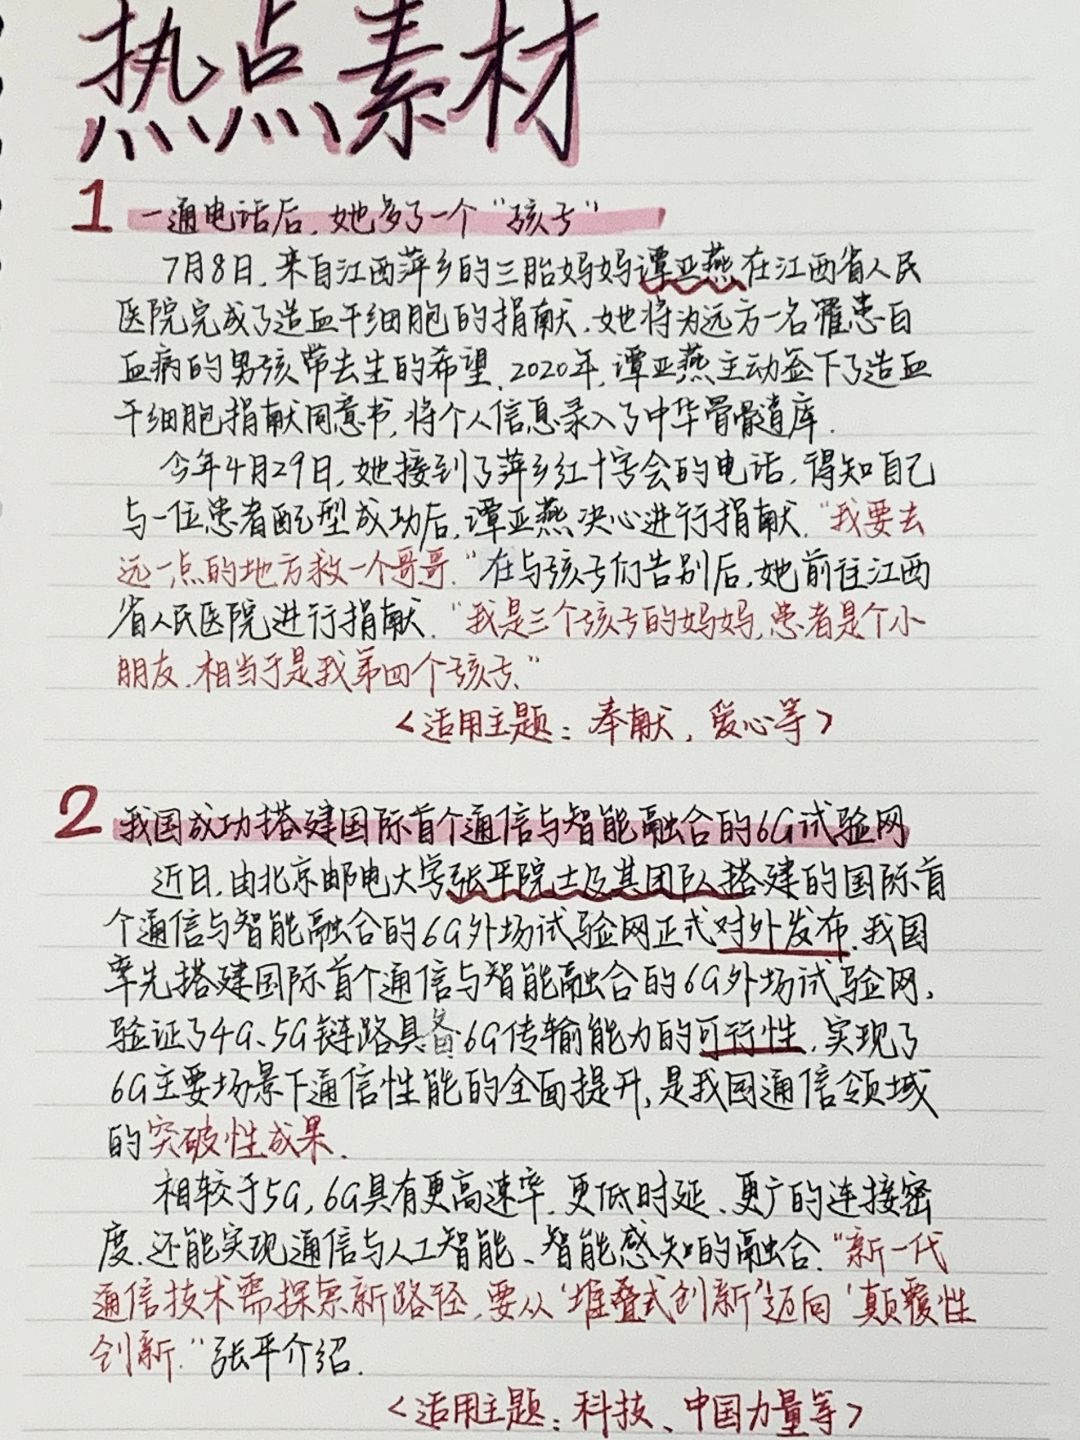 热点素材
1 一通电话后，她多了一个“孩子”
7月8日，来自江西萍乡的三胎妈妈谭亚燕在江西省人民
医院完成了造血干细胞的捐献，她将为远方一名罹患白
血病的男孩带去生的希望。2020年，谭亚燕主动签下了造血
干细胞捐献同意书，将个人信息录入了中华骨髓库.
今年4月29日，她接到了萍乡红十字会的电话，得知自己
与一位患者配型成功后，谭亚燕决心进行捐献.“我要去
远一点的地方救一个哥哥.”在与孩子们告别后，她前往江西
省人民医院进行捐献.“我是三个孩子的妈妈，患者是个小
朋友，相当于是我第四个孩子.”
<适用主题：奉献，爱心等>
2 我国成功搭建国际首个通信与智能融合的6G试验网
近日，由北京邮电大学张平院士及其团队搭建的国际首
个通信与智能融合的6G外场试验网正式对外发布.我国
率先搭建国际首个通信与智能融合的6G外场试验网，
验证了4G、5G链路具备6G传输能力的可行性，实现了
6G主要场景下通信性能的全面提升，是我国通信领域
的突破性成果.
相较于5G，6G具有更高速率、更低时延、更广的连接密
度，还能实现通信与人工智能、智能感知的融合.“新一代
通信技术需探索新路径，要从‘堆叠式创新’迈向‘颠覆性
创新.”张平介绍.
<适用主题：科技、中国力量等>